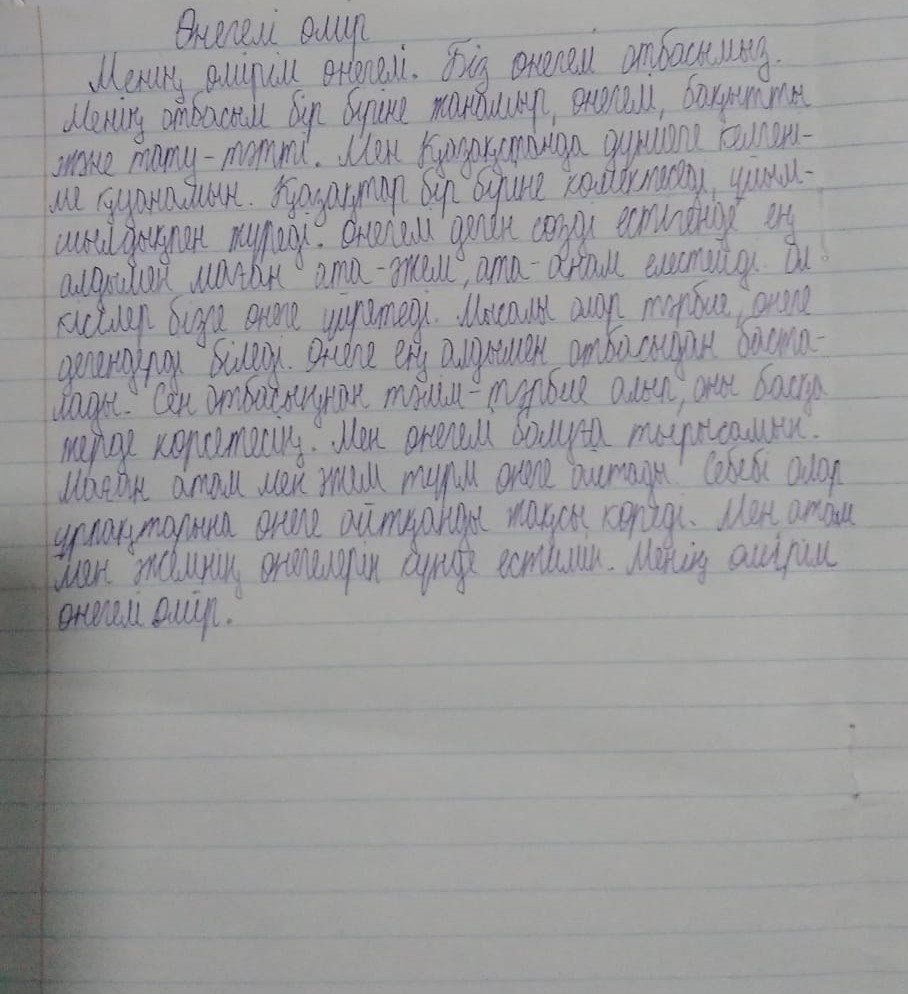 Өнегелі өмір
Менің өмірім өнегелі. Біз өнегелі отбасымыз.
Менің отбасым бір біріне жанашыр, өнегелі, бақытты
және тату-тәтті. Мен Қазақстанда дүниеге келген-
ме қуанамын. Қазақтар бір біріне көмектеседі, ұйым-
шылдықпен жүреді. Өнегелі деген сөзді естігенде ең
алдымен маған ата-әжем, ата-анам елестейді. Ол
кісілер бізге өнеге үйретеді. Мысалы олар тәрбие, өнеге
дегендерді біледі. Өнеге ең алдымен отбасыдан баста-
лады. Сен отбасыңнан тәлім-тәрбие алып, оны басқа
жерде көрсетесің. Мен өнегелі болуға тырысамын.
Маған атам мен әжем түрлі өнеге айтады. Себебі олар
ұрпақтарына өнеге айтқанды жақсы көреді. Мен атам
мен әжемнің өнегелерін күнде естимін. Менің өмірім
өнегелі өмір.